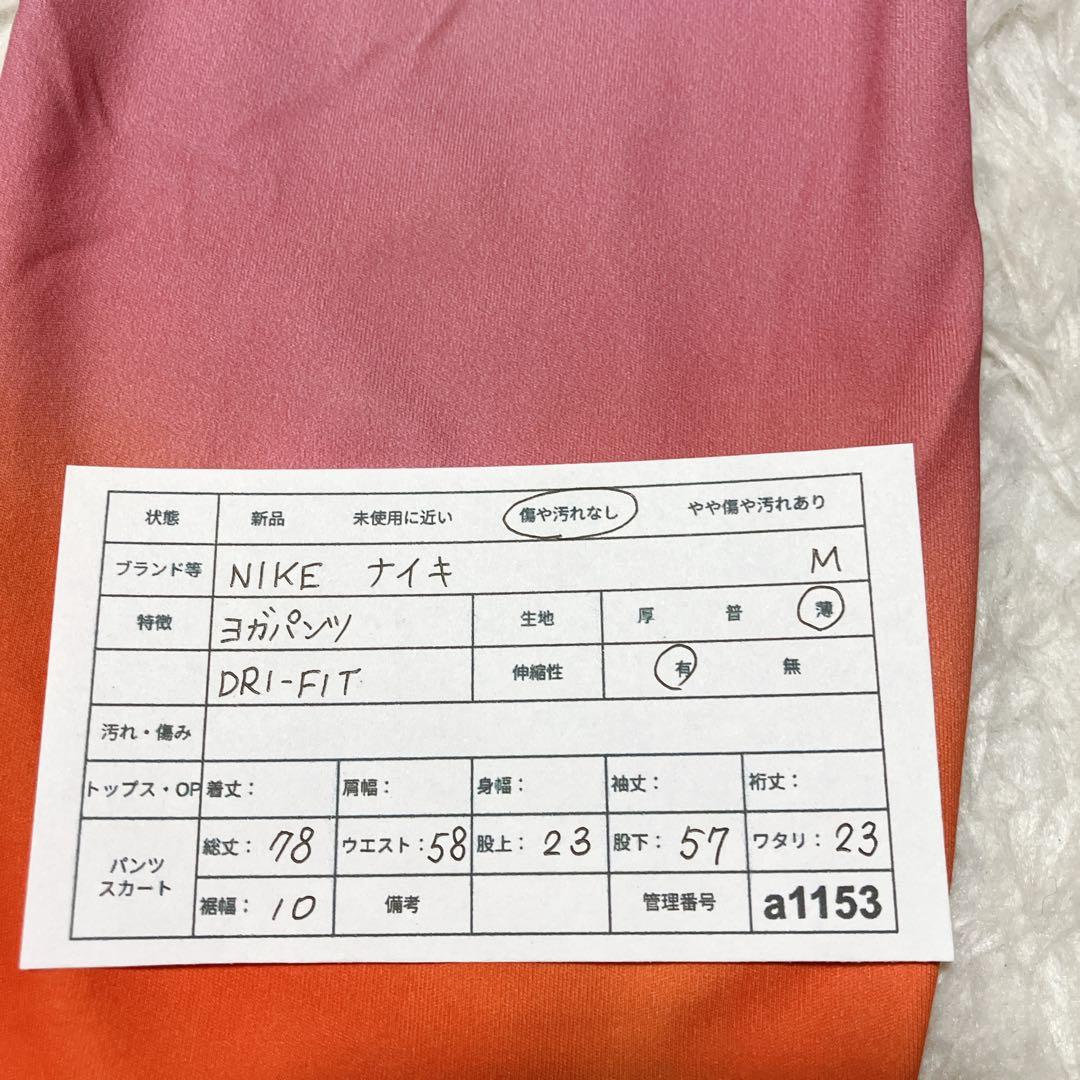 状態 新品 未使用に近い 傷や汚れなし やや傷や汚れあり
ブランド等 NIKE ナイキ M
特徴 ヨガパンツ 生地 厚 普 薄
DRI-FIT 伸縮性 有 無
汚れ・傷み
トップス・OP 着丈： 肩幅： 身幅： 袖丈： 裄丈：
パンツ スカート 総丈：78 ウエスト：58 股上：23 股下：57 ワタリ：23
裾幅：10 備考 管理番号 a1153